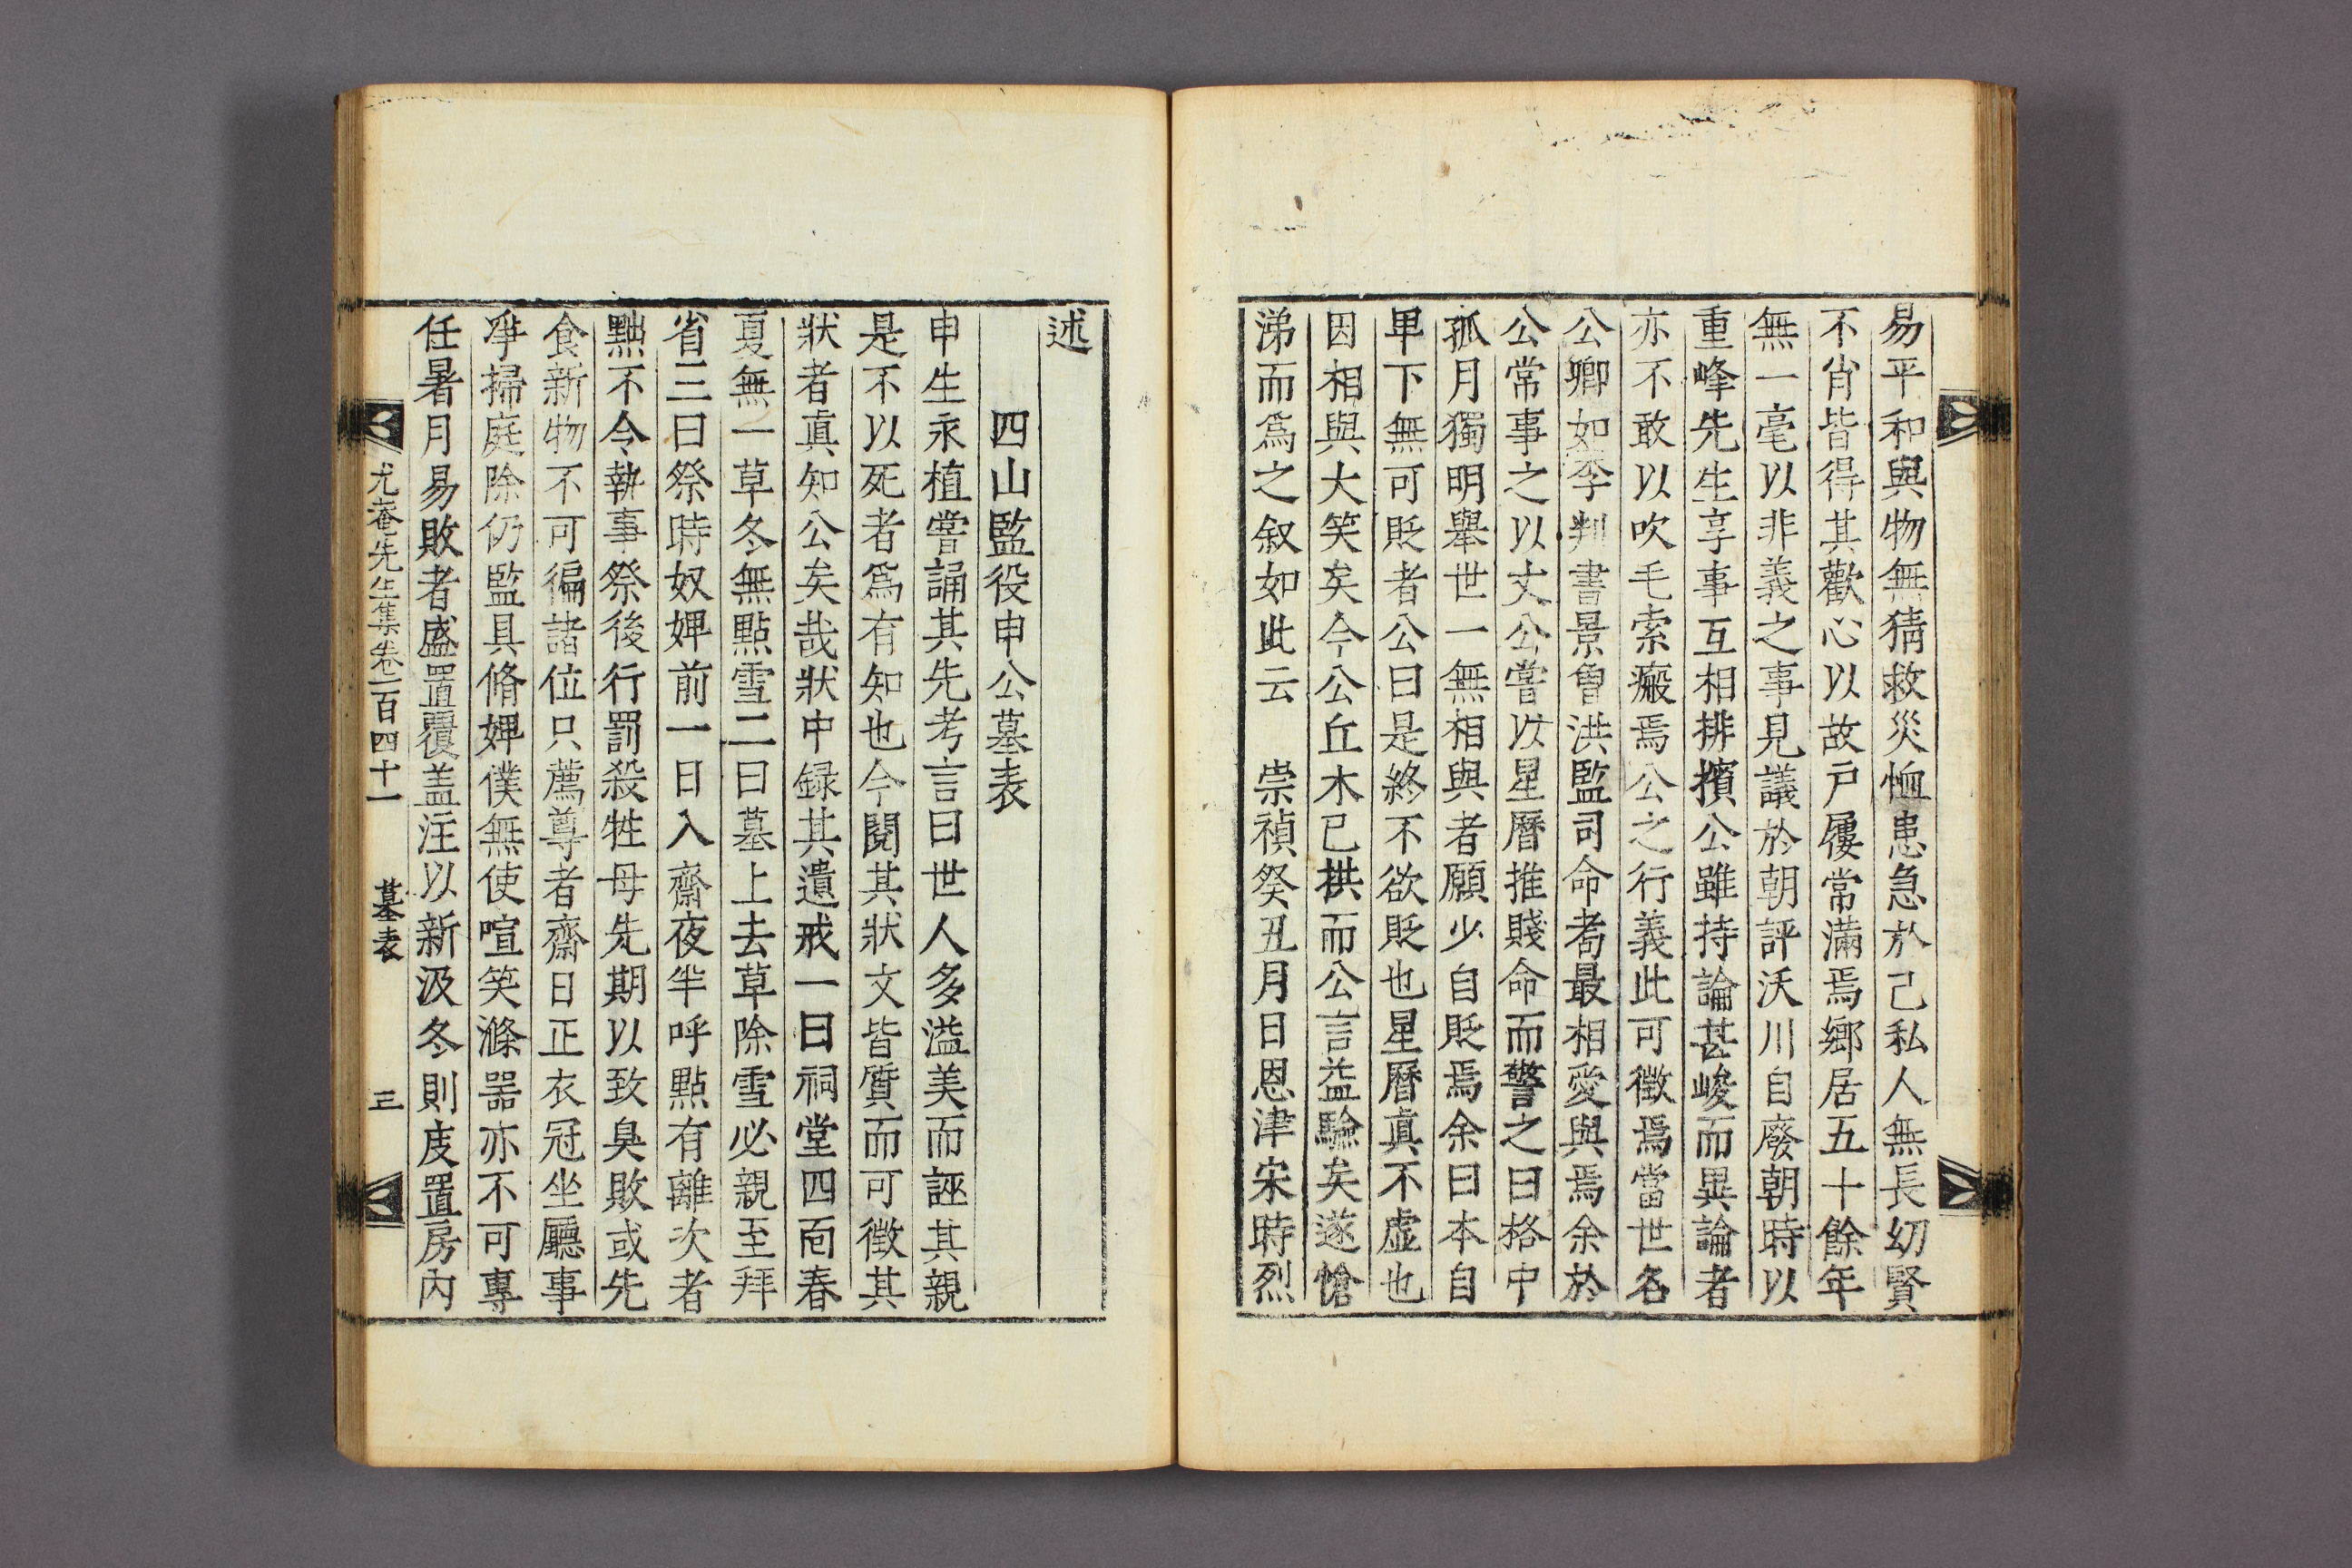 易平和與物無猜救災恤患急於己私人無長幼賢
不肖皆得其歡心以故戶屨常滿焉鄉居五十餘年
無一毫以非義之事見議於朝評沃川自廢朝時以
重峰先生享事互相排擯公雖持論甚峻而異論者
亦不敢以吹毛索瘢焉公之行義此可徵焉當世名
公卿如李判書景曾洪監司命耈最相愛與焉余於
公常事之以丈公嘗以星曆推賤命而警之曰格中
孤月獨明舉世一無相與者願少自貶焉余曰本自
卑下無可貶者公曰是終不欲貶也星曆眞不虛也
因相與大笑矣今公丘木已拱而公言益驗矣遂愴
涕而爲之叙如此云　崇禎癸丑月日恩津宋時烈
述
四山監役申公墓表
申生永植嘗誦其先考言曰世人多溢美而誣其親
是不以死者爲有知也今閱其狀文皆質而可徵其
狀者眞知公矣哉狀中録其遺戒一曰祠堂四面春
夏無一草冬無點雪二曰墓上去草除雪必親至拜
省三曰祭時奴婢前一日入齋夜半呼點有離次者
黜不令執事祭後行罰殺牲毋先期以致臭敗或先
食新物不可徧諸位只薦尊者齋日正衣冠坐廳事
爭掃庭除仍監具脩婢僕無使喧笑滌器亦不可專
任暑月易敗者盛置覆盖注以新汲冬則庋置房內
尤菴先生集卷一百四十一　墓表　三